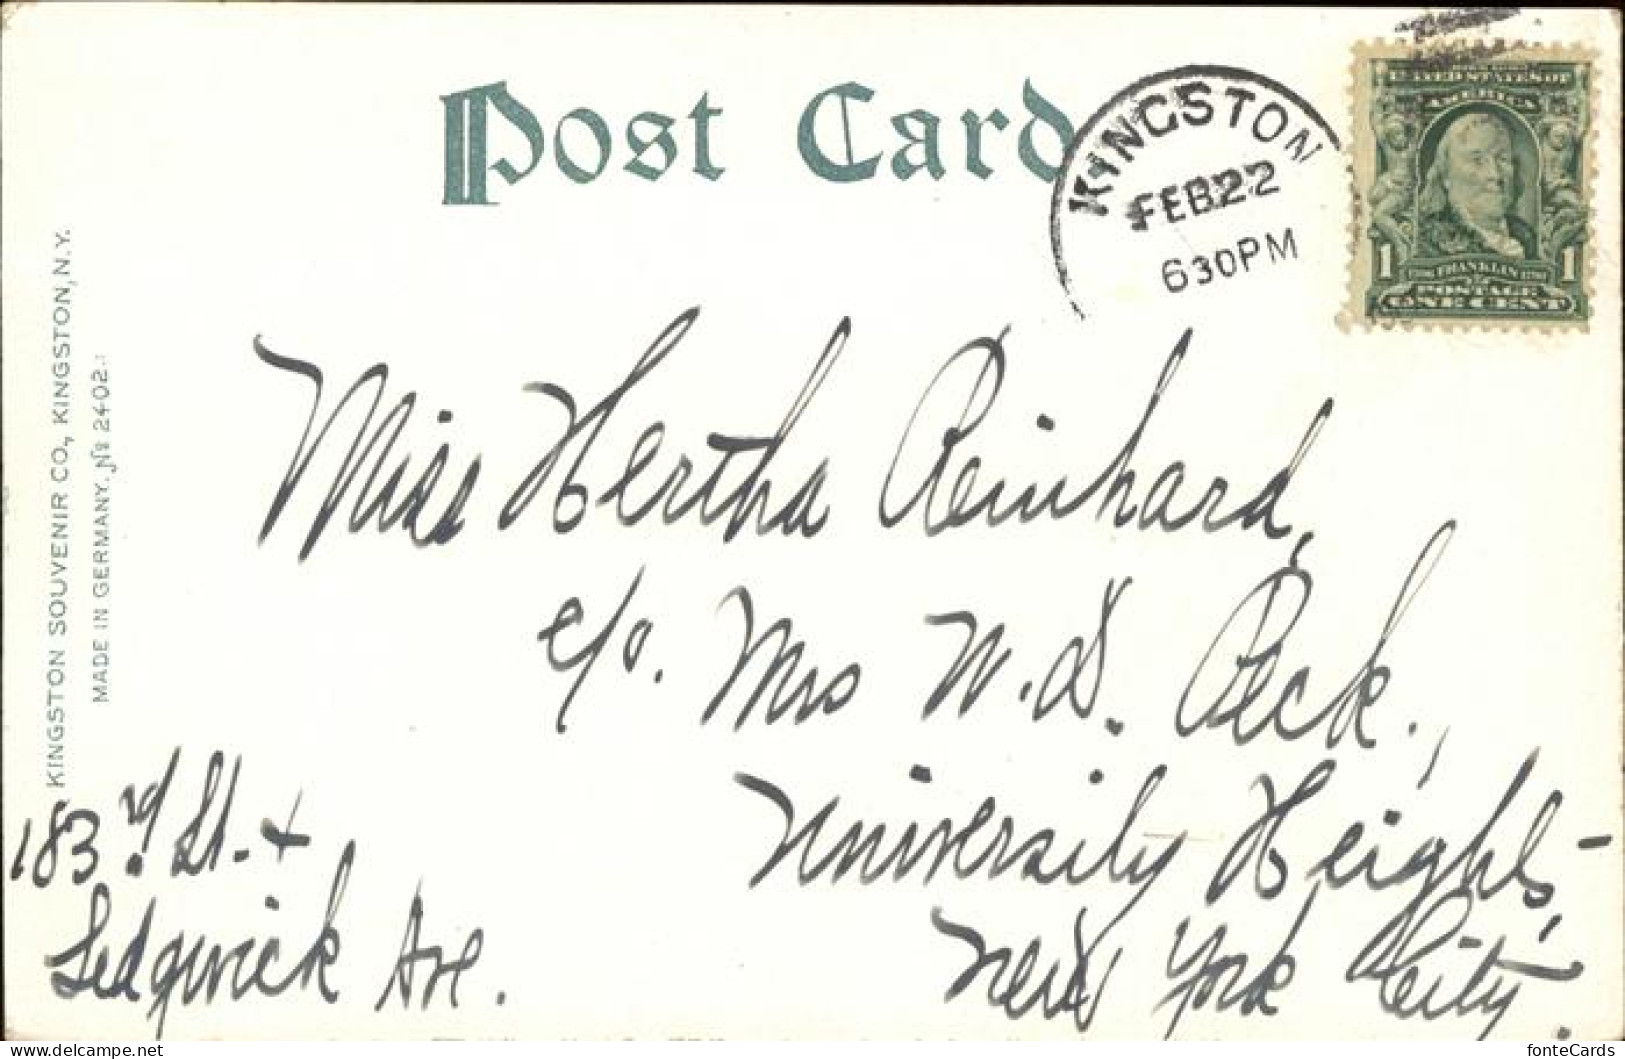 Post Card
KINGSTON
FEB 22
630PM
UNITED STATES OF
AMERICA
1 FRANKLIN 1
POSTAGE
ONE CENT
KINGSTON SOUVENIR CO., KINGSTON, N.Y.
MADE IN GERMANY. № 2402.
Miss Hertha Reinhard,
c/o. Mrs W. D. Peck.,
University Heights,
New York City.
183rd St. +
Sedgwick Ave.
fonteCards